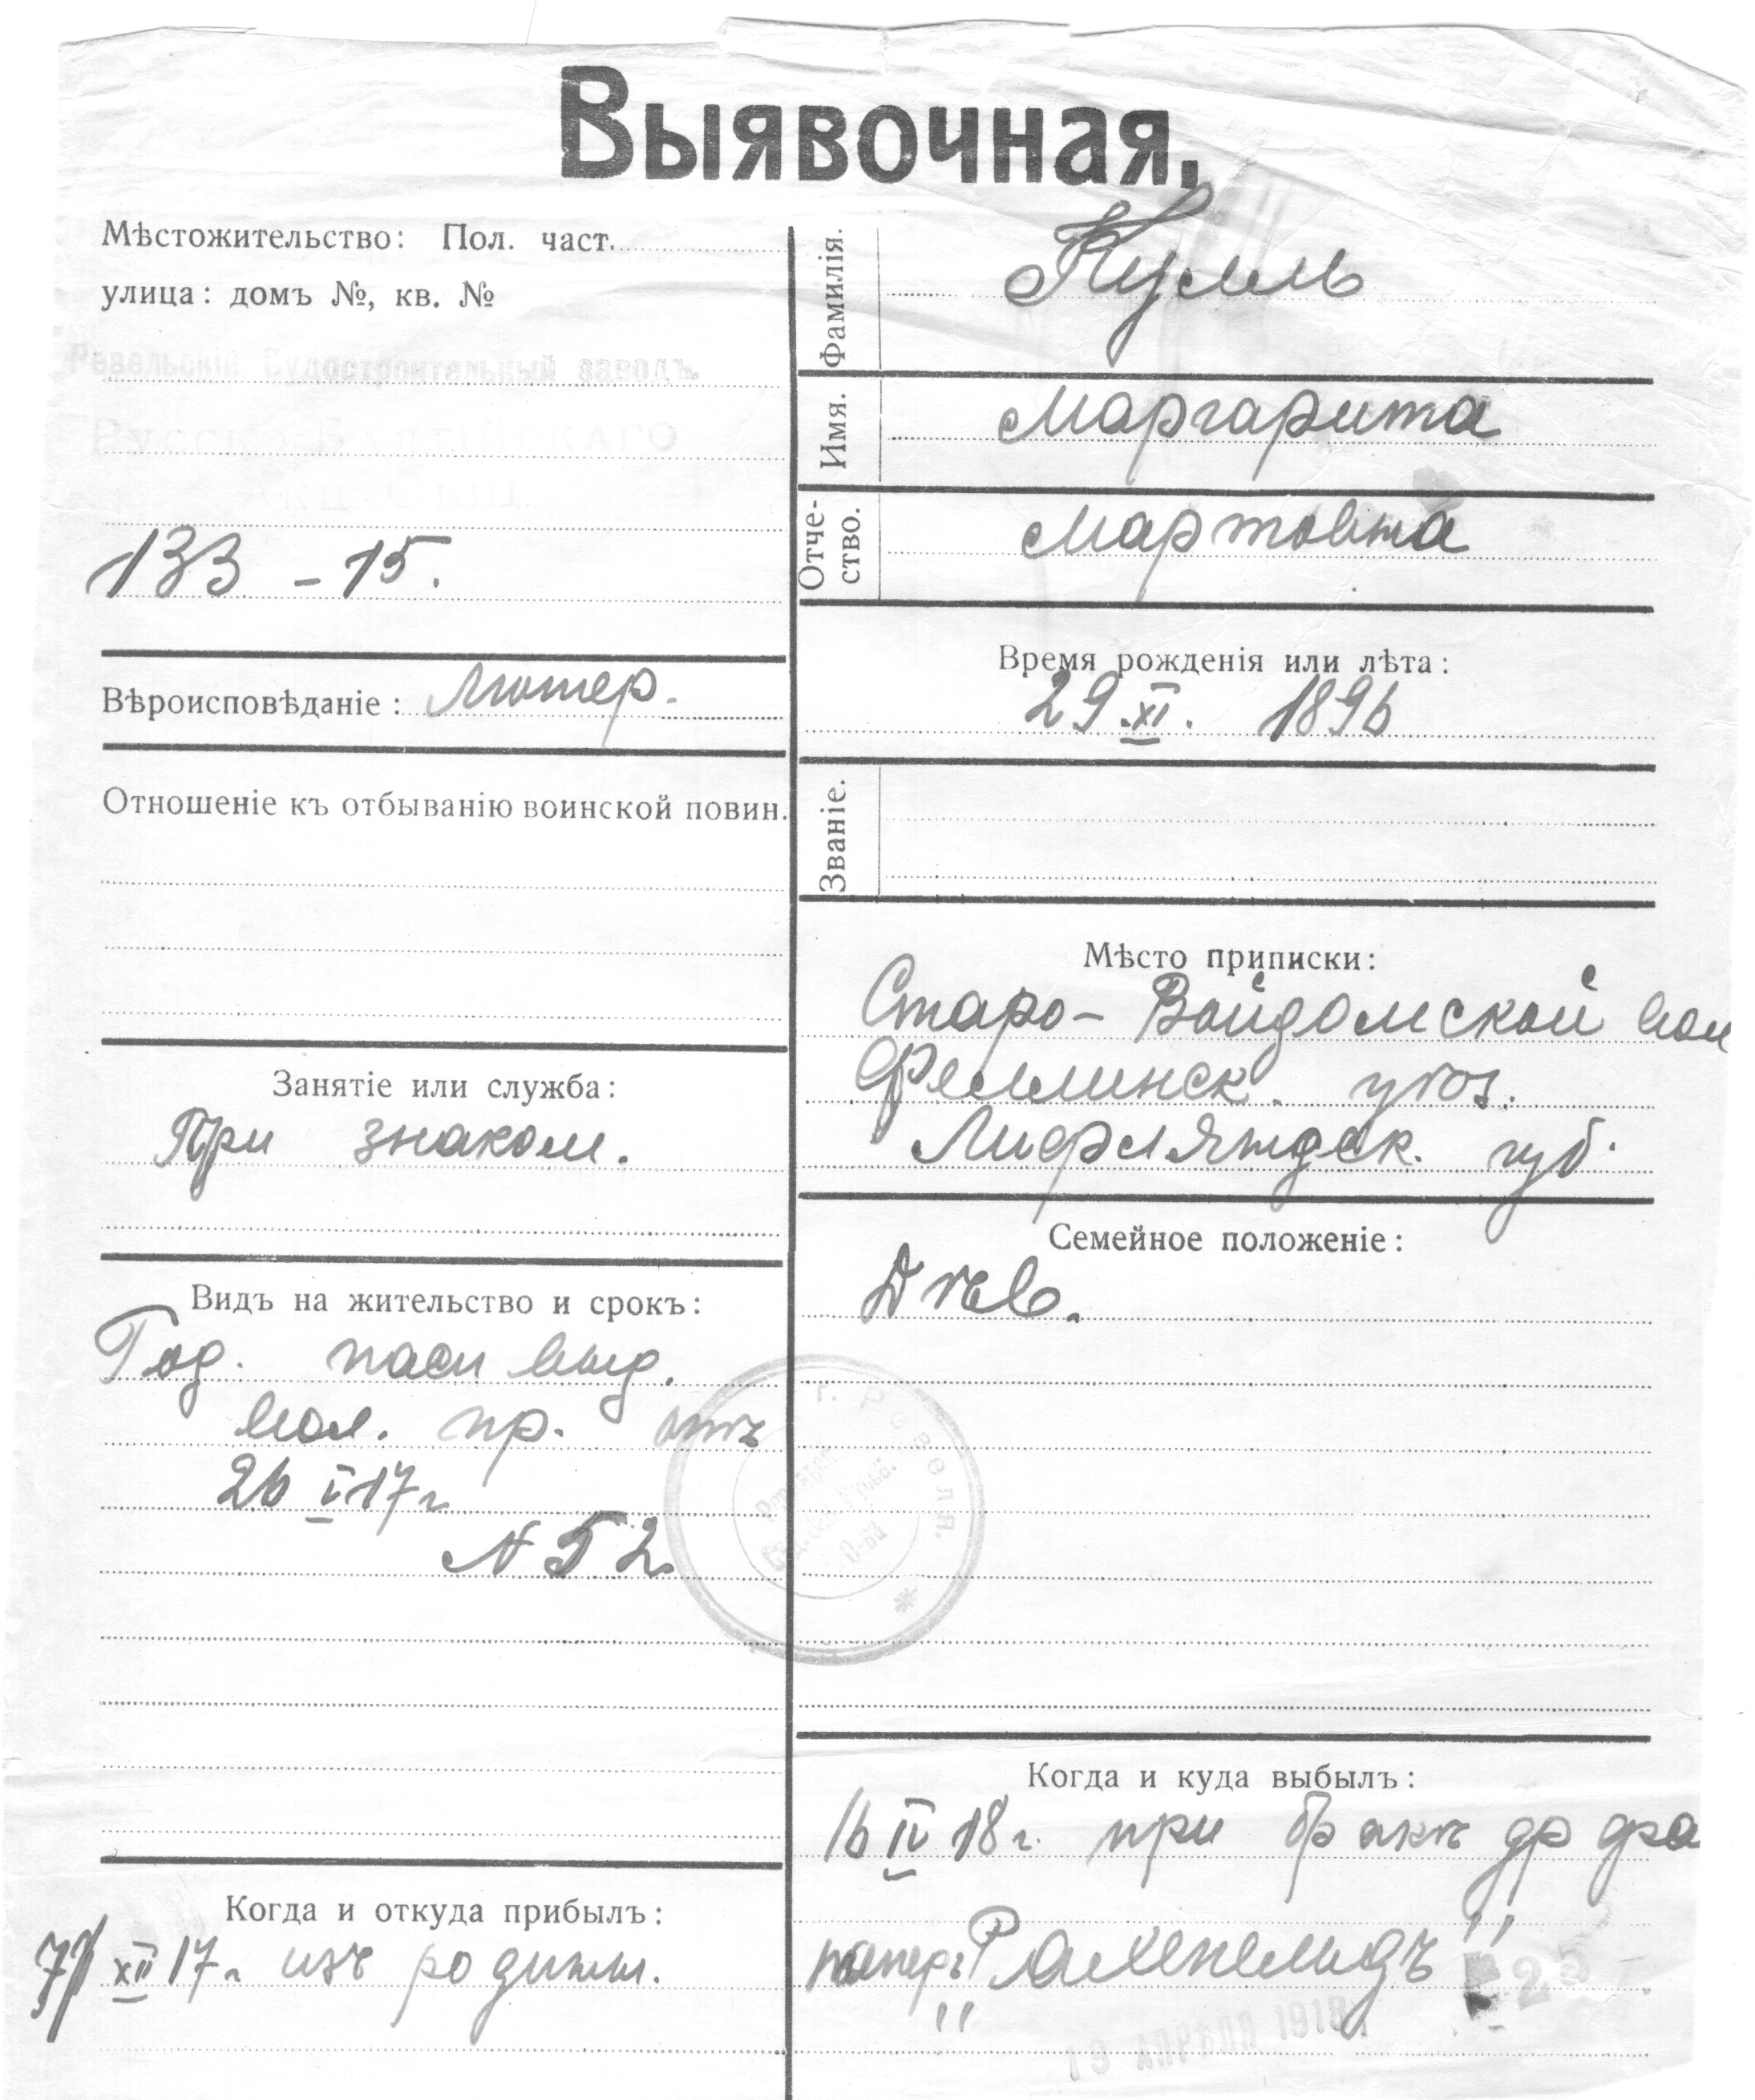 Выявочная.
Мѣстожительство: Пол. част.
улица: домъ №, кв. №
Ревельскій Судостроительный заводъ.
Русско-Балтійскаго
Акц. Общ.
133 - 15.
Вѣроисповѣданіе: Лютер.
Отношеніе къ отбыванію воинской повин.
Занятіе или служба:
При знаком.
Видъ на жительство и срокъ:
Год. пасп выд.
вол. пр. отъ
26 V 17 г
N 52
Когда и откуда прибылъ:
7/XII 17 г изъ родины.
Фамилія.
Кулль
Имя.
Маргарита
Отче-
ство.
Мартовна
Время рожденія или лѣта:
29 XI. 1896
Званіе.
Мѣсто приписки:
Старо- Войдомской вол
Феллинск. уѣз.
Лифляндск. губ.
Семейное положеніе:
Дѣв.
г. Ревеля.
Когда и куда выбылъ:
16 IV 18 г. при бракѣ
теперь
19 АПРѢЛЯ 1918